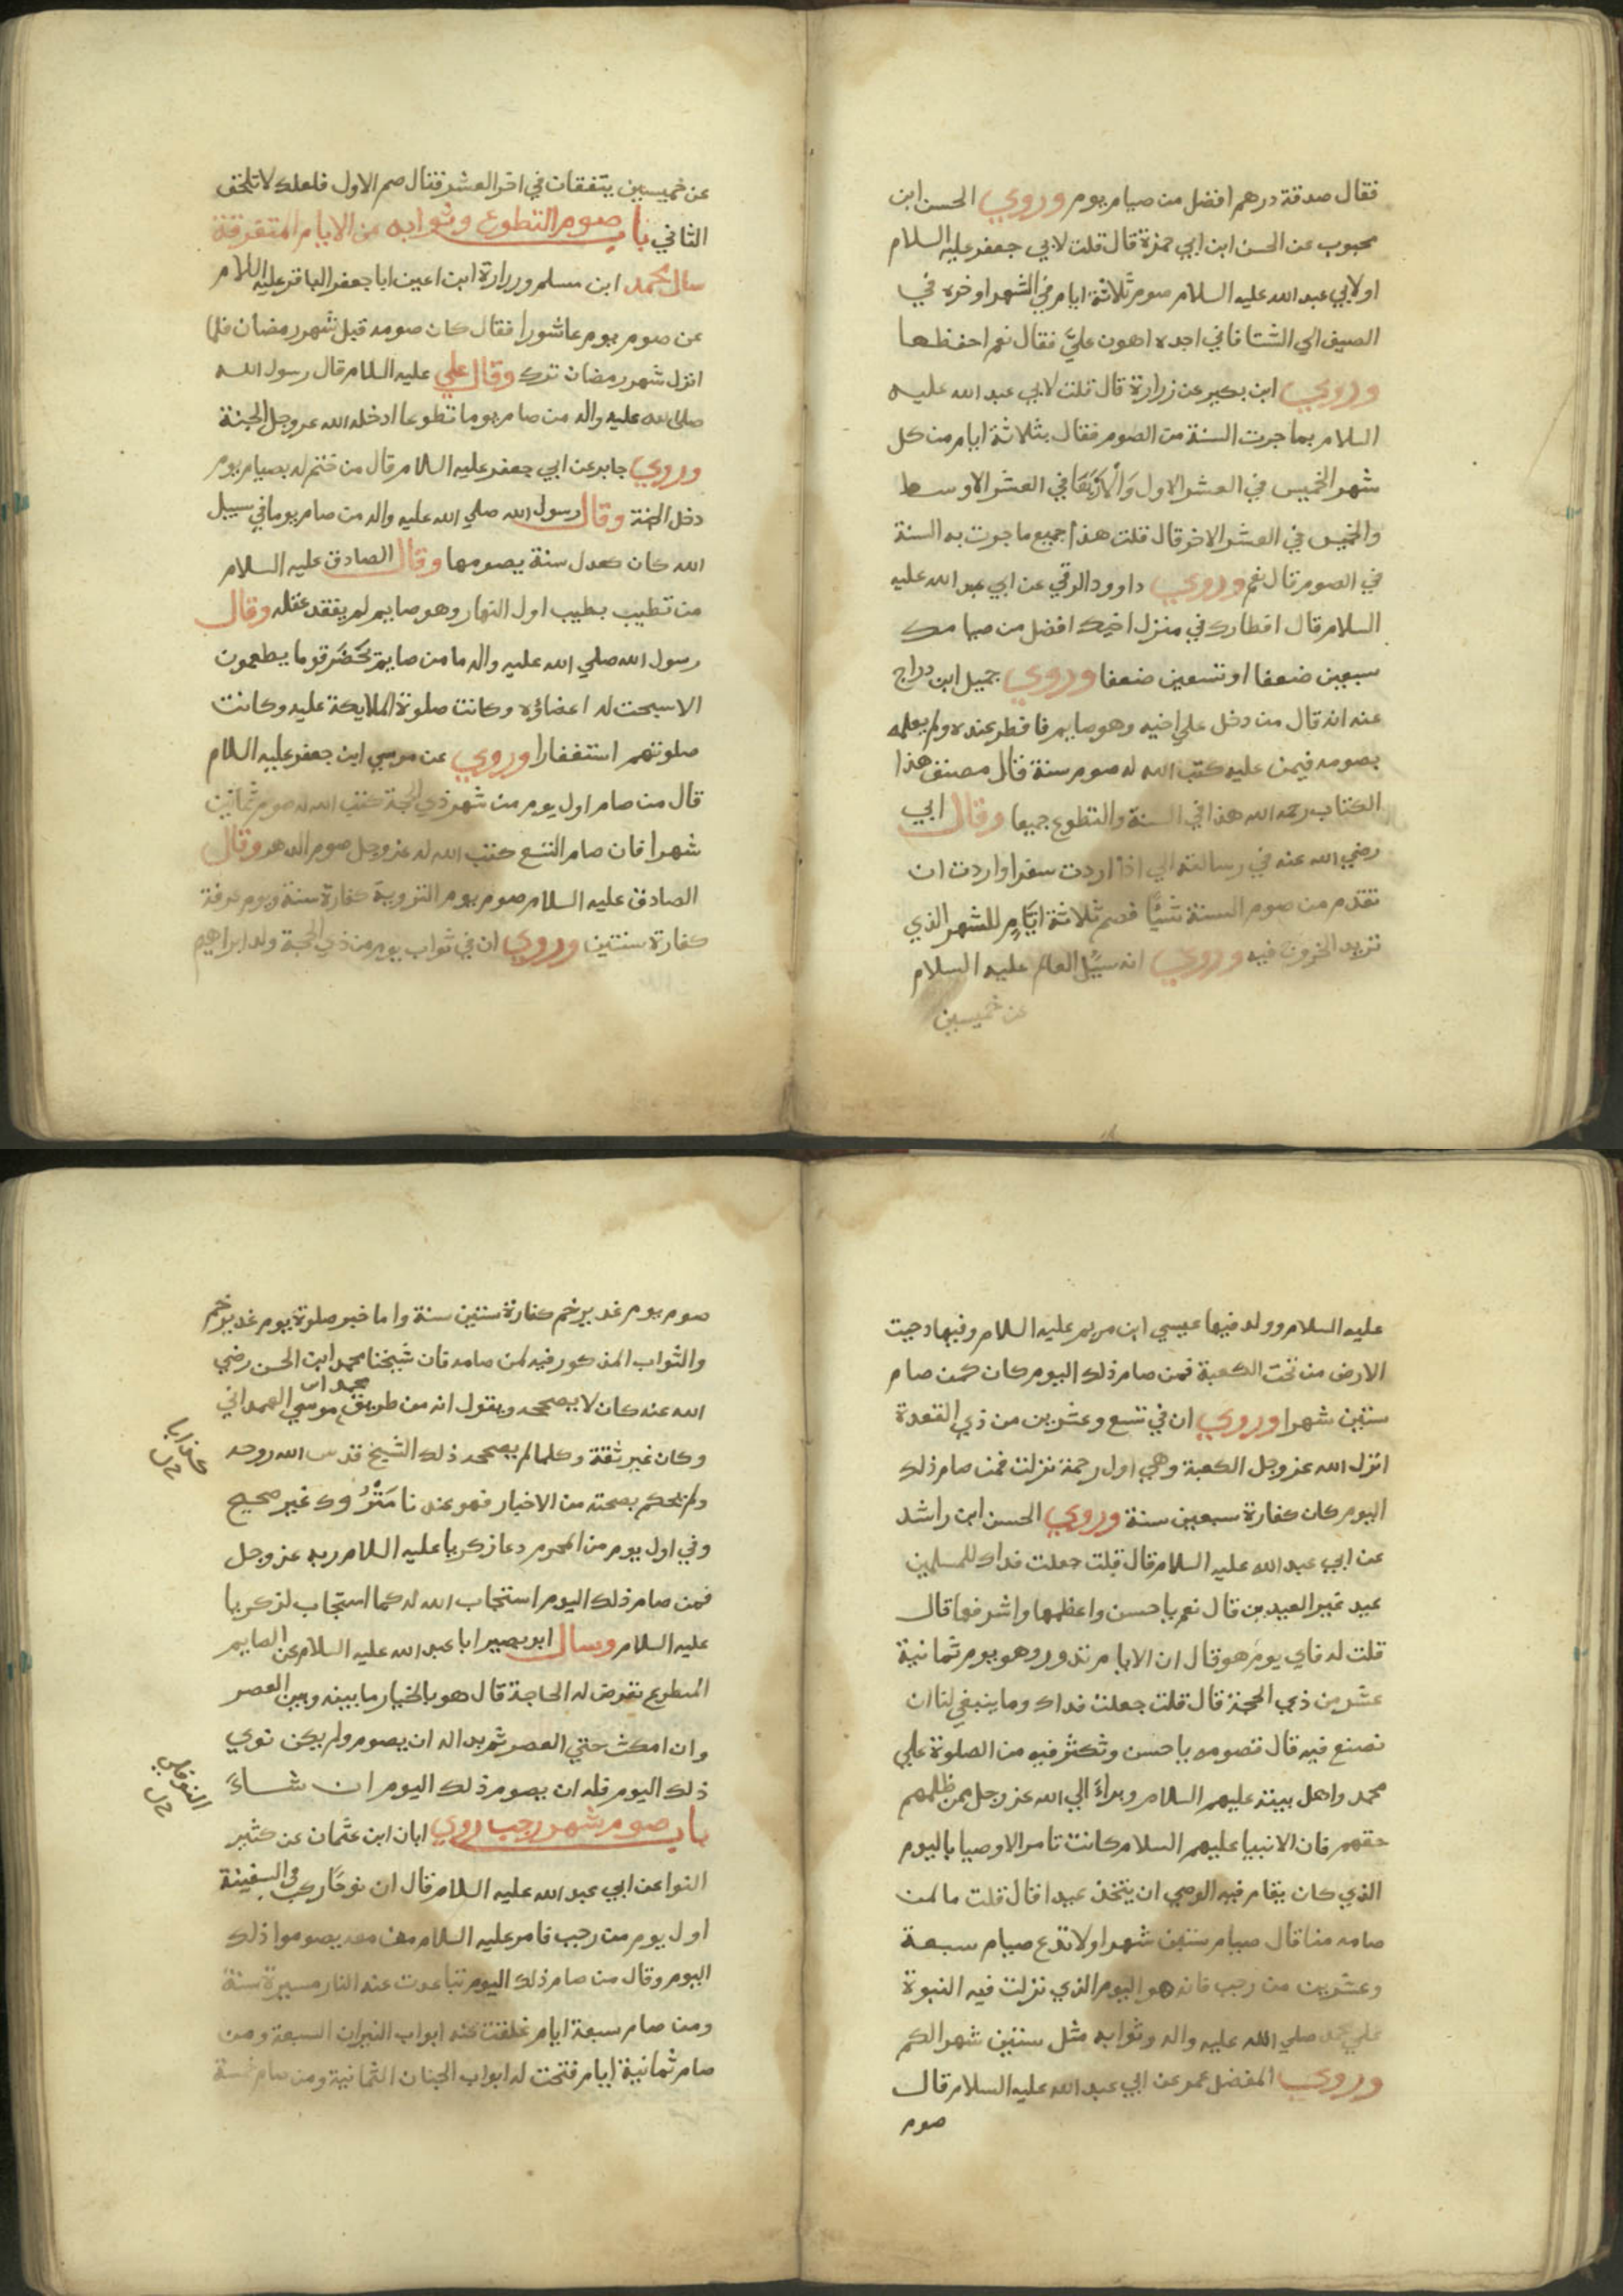 فقال صدقة درهم افضل من صيام يوم وروي الحسن ابن
محبوب عن الحسن ابن ابي حمزة قال قلت لابي جعفر عليه السلام
او لابي عبد الله عليه السلام صوم ثلاثة ايام في الشهر اوخره في
الصيف الي الشتا فاني اجده اهون عليَّ فقال نعم احفظها
وروي ابن بكير عن زرارة قال قلت لابي عبد الله عليه
السلام بما جرت السنة من الصوم فقال بثلاثة ايام من كل
شهر الخميس في العشر الاول وَالْاَرْبَعَا في العشر الاوسط
والخميس في العشر الاخر قال قلت هذا جميع ما جرت به السنة
في الصوم قال نعم وروي داوود الرقي عن ابي عبد الله عليه
السلام قال افطارك في منزل اخيك افضل من صيامك
سبعين ضعفا او تسعين ضعفا وروي جميل ابن دراج
عنه انه قال من دخل علي اخيه وهو صايم فافطر عنده ولم يعلمه
بصومه فيمن عليه كتب الله له صوم سنة قال مصنف هذا
الكتاب رحمه الله هذا في السنة والتطوع جميعا وقال ابي
رضي الله عنه في رسالته الي اذا اردت سفرا واردت ان
تقدم من صوم السنة شيًا فصم ثلاثة ايَّامٍ للشهر الذي
تريد الخروج فيه وروي انه سيُل العالم عليه السلام
عن خميسين
عن خميسين يتفقان في اخر العشر فقال صم الاول فلعلك لا تلحق
الثاني باب صوم التطوع وثوابه من الايام المتفرقة
سال محمد ابن مسلم وزرارة ابن اعين ابا جعفر الباقر عليه السلام
عن صوم يوم عاشورا فقال كان صومه قبل شهر رمضان فلما
انزل شهر رمضان ترك وقال علي عليه السلام قال رسول الله
صلي الله عليه واله من صام يوما تطوعا ادخله الله عز وجل الجنة
وروي جابر عن ابي جعفر عليه السلام قال من ختم له بصيام يوم
دخل الجنة وقال رسول الله صلي الله عليه واله من صام يوما في سبيل
الله كان كعدل سنة يصومها وقال الصادق عليه السلام
من تطيب بطيب اول النهار وهو صايم لم يفقد عقله وقال
رسول الله صلي الله عليه واله ما من صايم يَحْضُر قوما يطعمون
الا سبحت له اعضاؤه وكانت صلوة الملايكة عليه وكانت
صلوتهم استغفارا وروي عن موسي ابن جعفر عليه السلام
قال من صام اول يوم من شهر ذي الحجة كتب الله له صوم ثمانين
شهرا فان صام التسع كتب الله له عز وجل صوم الدهر وقال
الصادق عليه السلام صوم يوم التروية كفارة سنة ويوم عرفة
كفارة سنتين وروي ان في ثواب يوم من ذي الحجة ولد ابراهيم
عليه السلام وولد فيها عيسي ابن مريم عليه السلام وفيها دحيت
الارض من تحت الكعبة فمن صام ذلك اليوم كان كمن صام
ستين شهرا وروي ان في تسع وعشرين من ذي القعدة
انزل الله عز وجل الكعبة وهي اول رحمة نزلت فمن صام ذلك
اليوم كان كفارة سبعين سنة وروي الحسن ابن راشد
عن ابي عبد الله عليه السلام قال قلت جعلت فداك للمسلمين
عيد غير العيدين قال نعم يا حسن واعظمها واشرفها قال
قلت له فاي يوم هو قال ان الايام تدور وهو يوم ثمانية
عشر من ذي الحجة قال قلت جعلت فداك وما ينبغي لنا ان
نصنع فيه قال تصومه يا حسن وتكثر فيه من الصلوة علي
محمد واهل بيته عليهم السلام وبراءَ الي الله عز وجل ممن ظلمهم
حقهم فان الانبيا عليهم السلام كانت تامر الاوصيا باليوم
الذي كان يقام فيه الوصي ان يتخذ عيدا قال قلت ما لمن
صامه منا قال صيام ستين شهرا ولا تدع صيام سبعة
وعشرين من رجب فانه هو اليوم الذي نزلت فيه النبوة
علي محمد صلي الله عليه واله وثوابه مثل ستين شهر الكم
وروي المفضل عمر عن ابي عبد الله عليه السلام قال
صوم
صوم يوم غدير خم كفارة ستين سنة واما خبر صلوة يوم غدير خم
والثواب المذكور فيه لمن صامه فان شيخنا محمد ابن الحسن رضي
الله عنه كان لا يصححه ويقول انه من طريق محمد ابن موسي الهمداني
وكان غير ثقة وكلما لم يصححه ذلك الشيخ قدس الله روحه
ولم يحكم بصحته من الاخبار فهو عندنا مَتْرُوك غير صحيح
وفي اول يوم من المحرم دعا زكريا عليه السلام ربه عز وجل
فمن صام ذلك اليوم استجاب الله له كما استجاب لزكريا
عليه السلام وسال ابو بصير ابا عبد الله عليه السلام عن الصايم
المتطوع تعرض له الحاجة قال هو بالخيار ما بينه وبين العصر
وان امكث حتي العصر ثم بدا له ان يصوم ولم يكن نوي
ذلك اليوم فله ان يصوم ذلك اليوم ان شاءَ
باب صوم شهر رجب روي ابان ابن عثمان عن كثير
النوا عن ابي عبد الله عليه السلام قال ان نوحًا ركب في السفينة
اول يوم من رجب فامر عليه السلام من معه يصوموا ذلك
اليوم وقال من صام ذلك اليوم تباعدت عنه النار مسيرة سنة
ومن صام سبعة ايام غلقت عنه ابواب النيران السبعة ومن
صام ثمانية ايام فتحت له ابواب الجنان الثمانية ومن صام خمسة